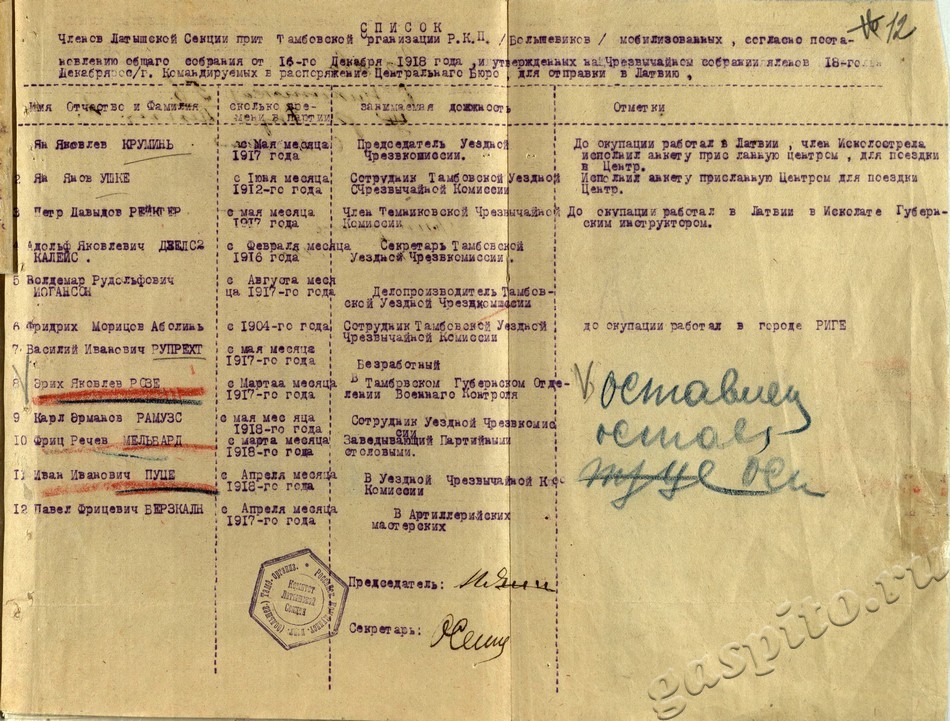 № 12
СПИСОК
Членов Латышской Секции прит Тамбовской Организации Р.К.П. / Большевиков / мобилизованных , согласно поста-
новлению общаго собрания от 16-го Декабря 1918 года , и утвержденных на Чрезвычайном собрании членов 18-го
Декабря с/г. Командируемых в распоряжение Центральнаго Бюро , для отправки в Латвию ,
Имя Отчество и Фамилия сколько вре- занимаемая должность Отметки
мени в партии
Ян Яковлев КРУМИНЬ с Мая месяца Председатель Уездной До окупации работал в Латвии , член Исколострела
1917 года Чрезвкомиссии. исполнил анкету прис ланную центром , для поездки
в Центр.
2 Ян Янов УШКЕ с Июня месяца Сотрудник Тамбовской Уездной Исполнил анкету присланную Центром для поездки
1912-го года Чрезвычайной Комиссии Центр.
3 Петр Давыдов РЕЙНГЕР с мая месяца Член Темниковской Чрезвычайной До окупации работал в Латвии в Исколате Губерн-
1917 года Комиссии ским инструктором.
4 Адольф Яковлевич ДЗЕЛС с Февраля месяца Секретарь Тамбовской
КАЛЕЙС . 1916 года Уездной Чрезвкомиссии .
5 Волдемар Рудольфович с Августа меся
ИОГАНСОН ца 1917-го года Делопроизводитель Тамбов-
ской Уездной Чрезвкомиссии
6 Фридрих Морицов Аболинь с 1904-го года Сотрудник Тамбовской Уездной до окупации работал в городе РИГЕ
Чрезвычайной Комиссии
7 Василий Иванович РУПРЕХТ с мая месяца
1917-го года Безработный
8 Эрих Яковлев РОЗЕ с Мартаа месяца В Тамбовском Губернском Отде- V оставлен
1917-го года лении Военнаго Контроля
9 Карл Эрманов РАМУЗС с мая мес яца Сотрудник Уездной Чрезвкомис
1918-го года сии
10 Фриц Речев МЕЛЬБАРД с марта месяца Заведывающий Партийными оставл
1918-го года столовыми.
11 Иван Иванович ПУЦЕ с Апреля месяца В Уездной Чрезвычайной К Пуце Ост
1918-го года Комиссии
12 Павел Фрицевич БЕРЗКАЛН с Апреля месяца В Артиллерийских
1917-го года мастерских
Комитет
Латышской
Секции
Председатель:
Секретарь:
gaspito.ru